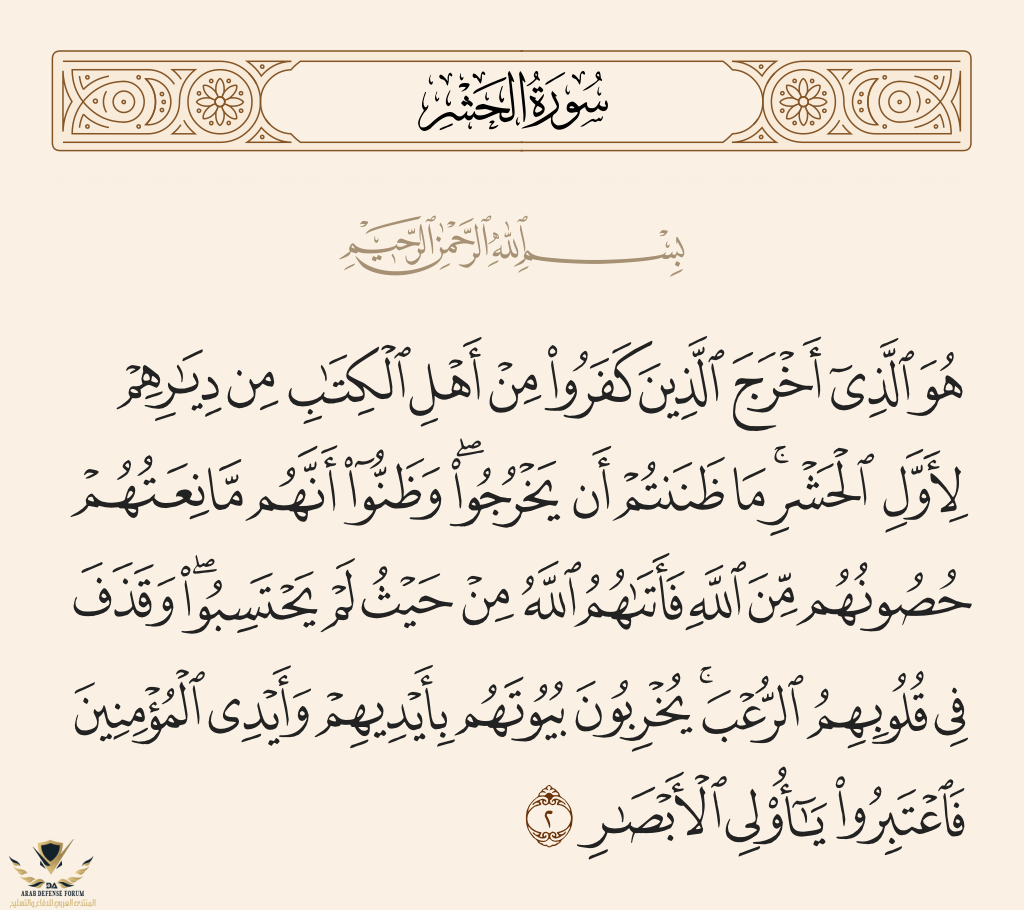 سُورَةُ الحَشۡرِ
بِسۡمِ ٱللَّهِ ٱلرَّحۡمَٰنِ ٱلرَّحِيمِ
هُوَ ٱلَّذِيٓ أَخۡرَجَ ٱلَّذِينَ كَفَرُواْ مِنۡ أَهۡلِ ٱلۡكِتَٰبِ مِن دِيَٰرِهِمۡ
لِأَوَّلِ ٱلۡحَشۡرِۚ مَا ظَنَنتُمۡ أَن يَخۡرُجُواْۖ وَظَنُّوٓاْ أَنَّهُم مَّانِعَتُهُمۡ
حُصُونُهُم مِّنَ ٱللَّهِ فَأَتَىٰهُمُ ٱللَّهُ مِنۡ حَيۡثُ لَمۡ يَحۡتَسِبُواْۖ وَقَذَفَ
فِي قُلُوبِهِمُ ٱلرُّعۡبَۚ يُخۡرِبُونَ بُيُوتَهُم بِأَيۡدِيهِمۡ وَأَيۡدِي ٱلۡمُؤۡمِنِينَ
فَٱعۡتَبِرُواْ يَٰٓأُوْلِي ٱلۡأَبۡصَٰرِ ٢
DA
ARAB DEFENSE FORUM
المنتدى العربي للدفاع والتسليح